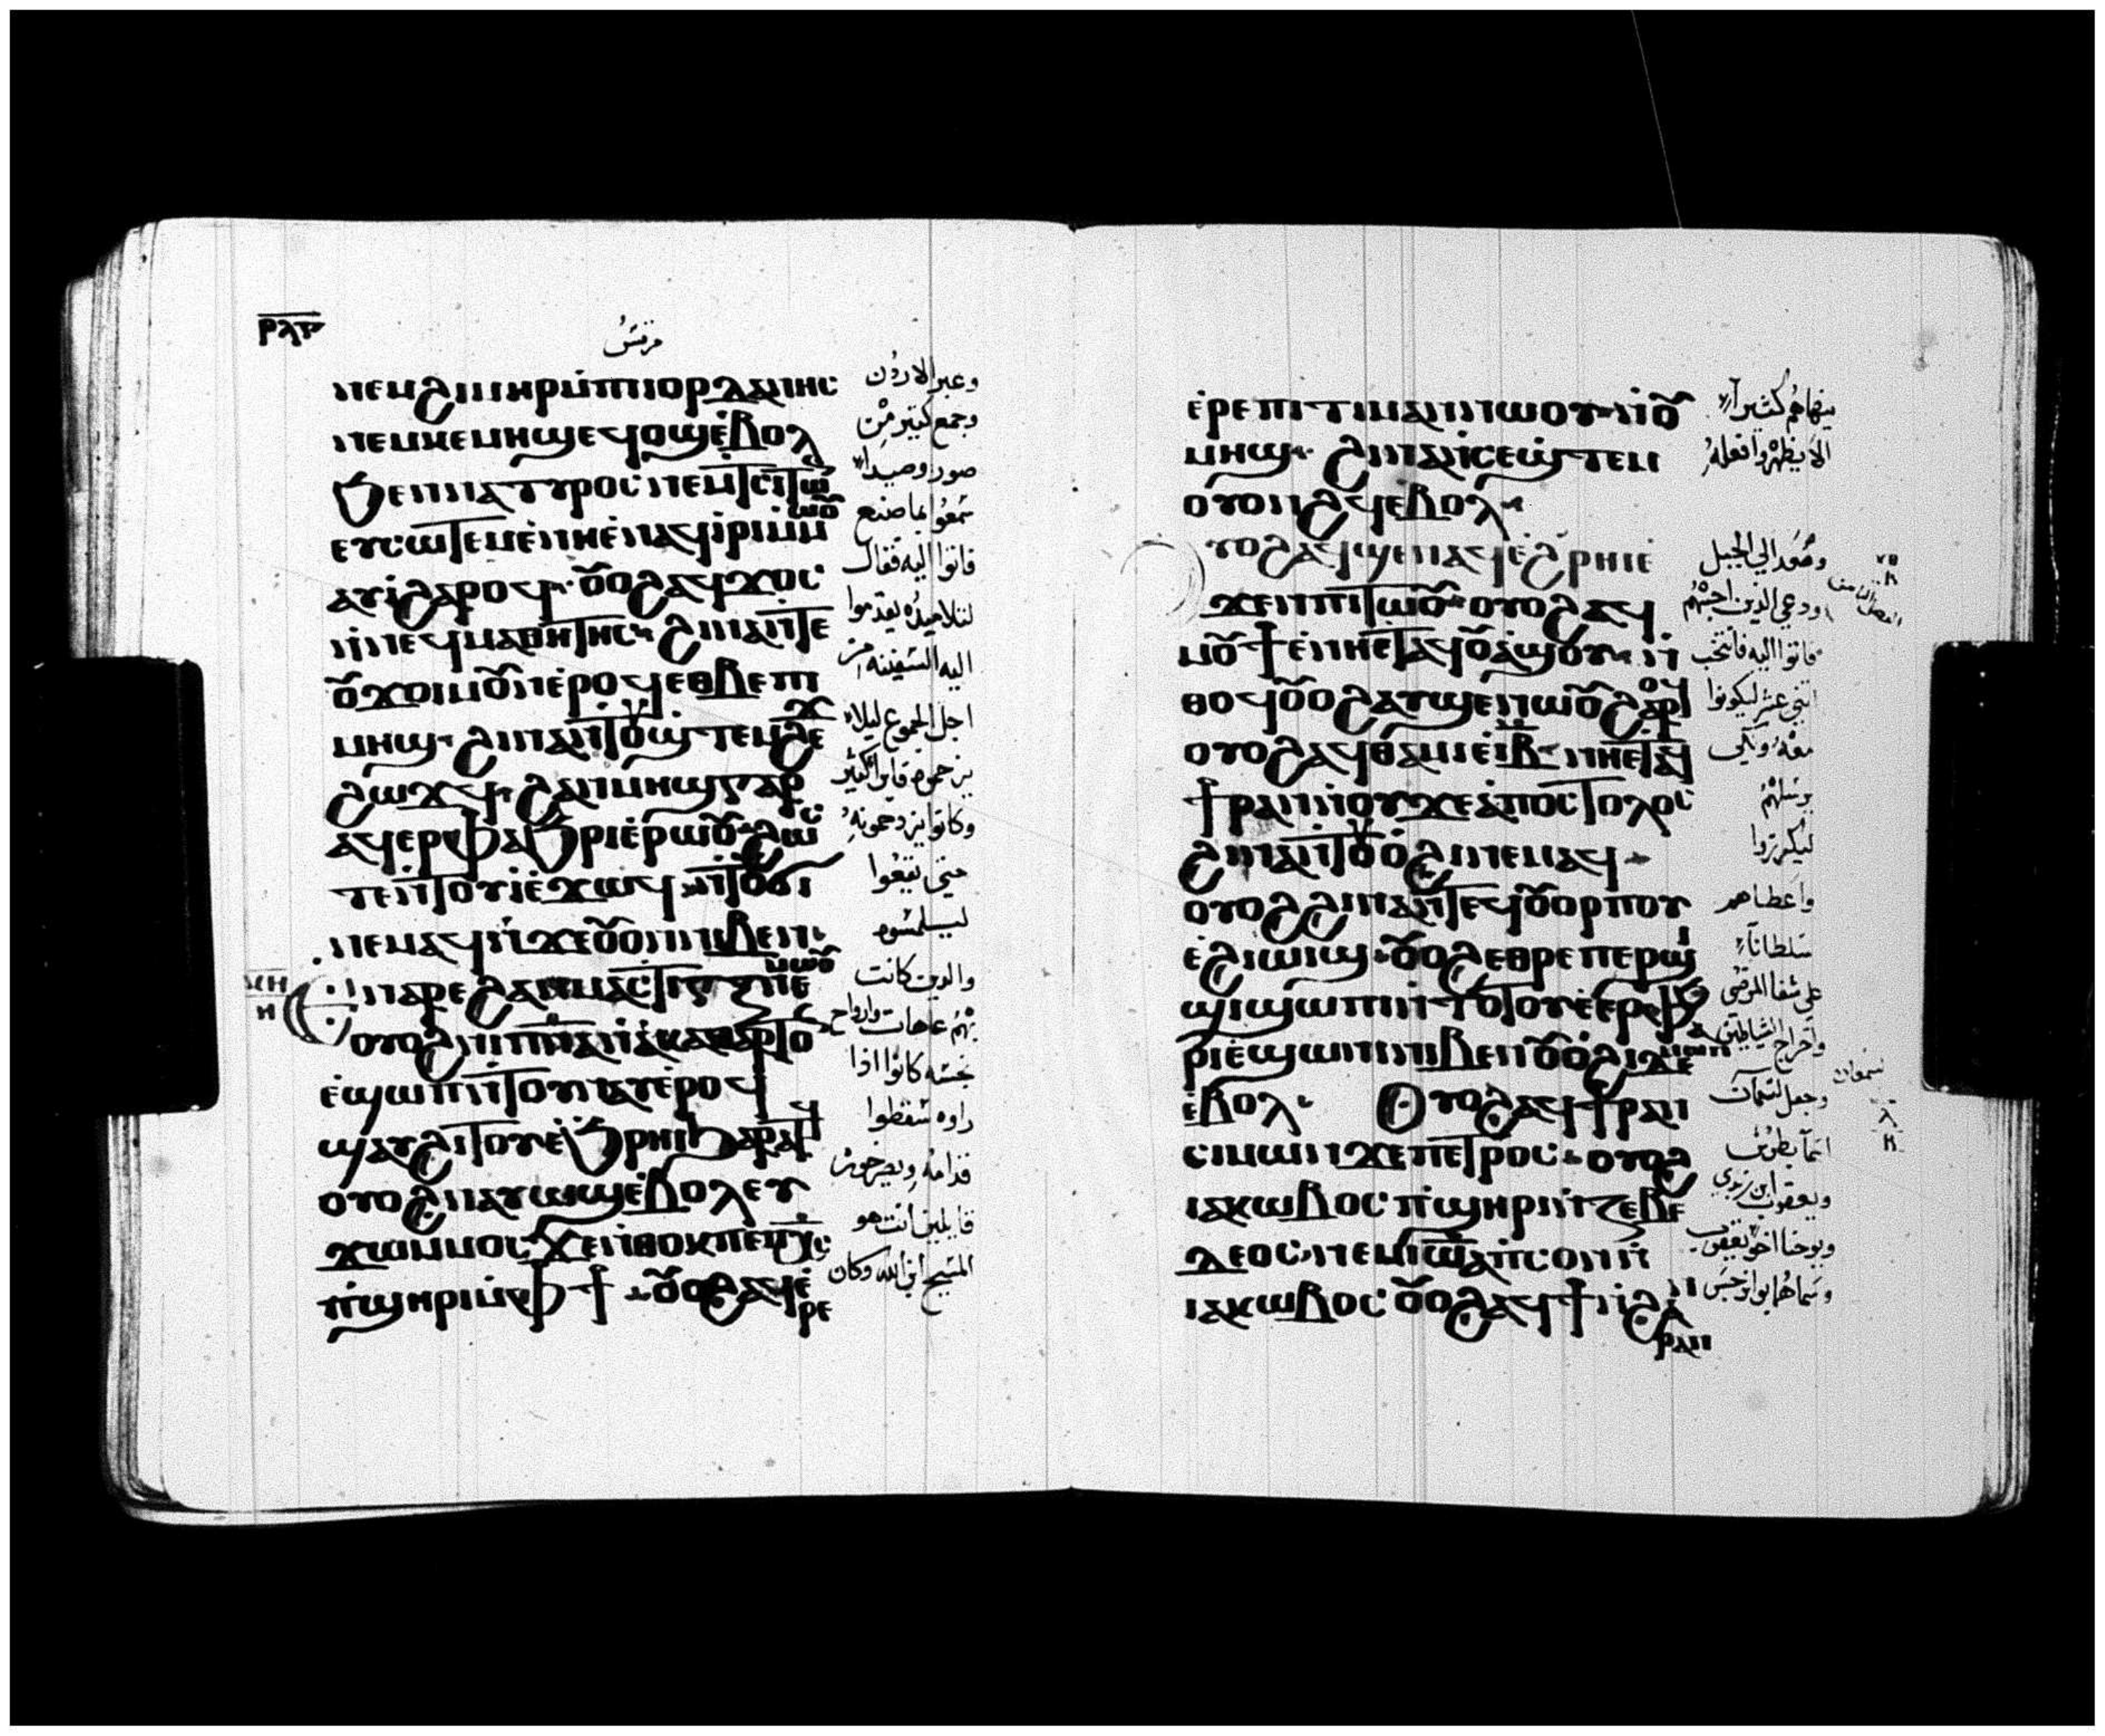 ⲣⲗⲋ
مرقس
ⲛⲉⲙϩⲓⲙⲏⲣⲙ̇ⲡⲓⲓⲟⲣⲇⲁⲛⲏⲥ
ⲛⲉⲙⲕⲉⲙⲏϣⲉϥⲟϣⲉ̇ⲃⲟⲗ
ϧⲉⲛⲛⲁⲧⲩⲣⲟⲥⲛⲉⲙⲧⲥⲓⲧⲱⲛ
ⲉⲩⲥⲱⲧⲉⲙⲉ̇ⲛⲏⲉ̇ⲛⲁϥⲓ̇ⲣⲓⲙ̇ⲙⲱⲟⲩ
ⲁⲩⲓ̇ϩⲁⲣⲟϥ ⲟⲩⲟϩⲁϥϫⲟⲥ
ⲛ̇ⲛⲉϥⲙⲁⲑⲏⲧⲏⲥ ϩⲓⲛⲁⲛ̇ⲧⲉ
ⲟⲩϫⲟⲓⲙⲟⲩⲛⲉ̇ⲣⲟϥⲉⲑⲃⲉⲡⲓ
ⲙⲏϣ ϩⲓⲛⲁⲛ̇ⲧⲟⲩϣ̇ⲧⲉⲙϩⲉϫ
ϩⲱϫϥ ϩⲁⲛⲙⲏϣⲅⲁⲣ
ⲁϥⲉⲣⲫⲁϧⲣⲓⲉ̇ⲣⲱⲟⲩ ϩⲱⲥ
ⲧⲉⲛ̇ⲧⲟⲩⲓ̇ⲉ̇ϫⲱϥ ⲛ̇ⲧⲟⲩϭⲓ
ⲛⲉⲙⲁϥⲛ̇ϫⲉⲟⲩⲟⲛⲛⲓⲃⲉⲛ
ⲛⲁⲣⲉϩⲁⲛⲙⲁⲥⲧⲓⲅⲝ ⲙⲙⲱⲟⲩⲡⲉ
ⲟⲩⲟϩⲛⲓⲡⲛⲁⲛ̇ⲁ̇ⲕⲁⲑⲁⲣⲧⲟⲛ
ⲉ̇ϣⲱⲡⲛ̇ⲧⲟⲩⲛⲁⲩⲉ̇ⲣⲟϥ
ϣⲁⲩϩⲓⲧⲟⲩⲉ̇ϧⲣⲏⲓϧⲁⲣⲁⲧϥ
ⲟⲩⲟϩⲛⲁⲩⲱϣⲉ̇ⲃⲟⲗⲉⲩ
ϫⲱⲙⲙⲟⲥ ϫⲉⲛ̇ⲑⲟⲕⲡⲉⲡⲭⲥ
ⲡ̇ϣⲏⲣⲓⲙ̇ⲫϯ ⲟⲩⲟϩⲛⲁϥⲉ̇ⲣⲉ
وعبر الاردن
وجمع كثير من
صور وصيدا
سمعوا بما صنع
فاتوا اليه فقال
لتلاميذه يقدموا
اليه السفينه من
اجل الجموع ليلا
وكانوا يزدحمونه
حتى يقعوا
والذين كانت
بهم عاهات وارواح
نجسه كانوا اذا
راوه سقطوا
قدامه ويصرخون
قايلين انت هو
المسيح ابن الله وكان
ⲕⲏ
ⲏ
ⲉ̇ⲣⲉⲡⲓⲧⲓⲙⲁⲛⲛⲱⲟⲩ ⲛ̇ⲟⲩ
ⲙⲏϣ ϩⲓⲛⲁⲛ̇ⲥⲉϣ̇ⲧⲉⲙ
ⲟⲩⲟⲛϩϥⲉ̇ⲃⲟⲗ
ⲩⲟϩⲁϥϣⲉⲛⲁϥⲉ̇ϩⲣⲏⲓⲉ̇
ϫⲉⲛⲡⲓⲧⲱⲟⲩ ⲟⲩⲟϩⲁϥ
ⲙⲟⲩϯⲉ̇ⲛⲏⲉ̇ⲧⲁϥⲟⲩⲁϣⲟⲩ ⲛ̇
ⲑⲟϥ ⲟⲩⲟϩⲁⲩϣⲉⲛⲱⲟⲩϩⲁⲣⲟϥ
ⲟⲩⲟϩⲁϥⲑⲁⲙⲓⲉ̇ⲓ̅ⲃ̅ ⲛⲏⲉ̇ⲧⲁϥ
ϯⲣⲁⲛⲛ̇ⲱⲟⲩϫⲉⲁ̇ⲡⲟⲥⲧⲟⲗⲟⲥ
ϩⲓⲛⲁⲛ̇ⲧⲟⲩⲟ̇ϩⲓⲛⲉⲙⲁϥ
ⲟⲩⲟϩϩⲓⲛⲁⲛ̇ⲧⲉϥⲟⲩⲟⲣⲡⲟⲩ
ⲉ̇ϩⲓⲱⲓϣ ⲟⲩⲟϩⲉⲑⲣⲉⲡⲉⲣϣⲓ
ϣⲓϣⲱⲡⲓⲛ̇ⲧⲟⲧⲟⲩⲉ̇ⲉⲣⲫⲁϧ
ⲣⲓⲉ̇ϣⲱⲛⲓⲛⲓⲃⲉⲛⲟⲩⲟϩϩⲓⲇⲉⲙⲱⲛ
ⲉ̇ⲃⲟⲗ Ⲟⲩⲟϩⲁϥϯⲣⲁⲛ
ⲥⲓⲙⲱⲛϫⲉⲡⲉⲧⲣⲟⲥ ⲟⲩⲟϩ
ⲓⲁⲕⲱⲃⲟⲥ ⲡ̇ϣⲏⲣⲓⲛ̇ⲍⲉⲃⲉ
ⲇⲉⲟⲥ ⲛⲉⲙⲓⲱⲁⲡ̇ⲥⲟⲛⲛ̇
ⲓⲁⲕⲱⲃⲟⲥ ⲟⲩⲟϩⲁϥϯⲛ̇ϩⲁⲛ
ⲣⲁⲛ
ينهاهم كثيرا
الا يظهروا فعله
وصعد الي الجبل
ودعي الذين احبهم
فاتوا اليه فانتخب
اثني عشر ليكونوا
معه ولكي
يرسلهم
ليكرزوا
واعطاهم
سلطانا
علي شفا المرضي
واخراج الشياطين
وجعل لسمعان
اسما بطرس
ويعقوب ابن زبدي
ويوحنا اخو يعقوب
سمعان
ⲗ
ⲏ